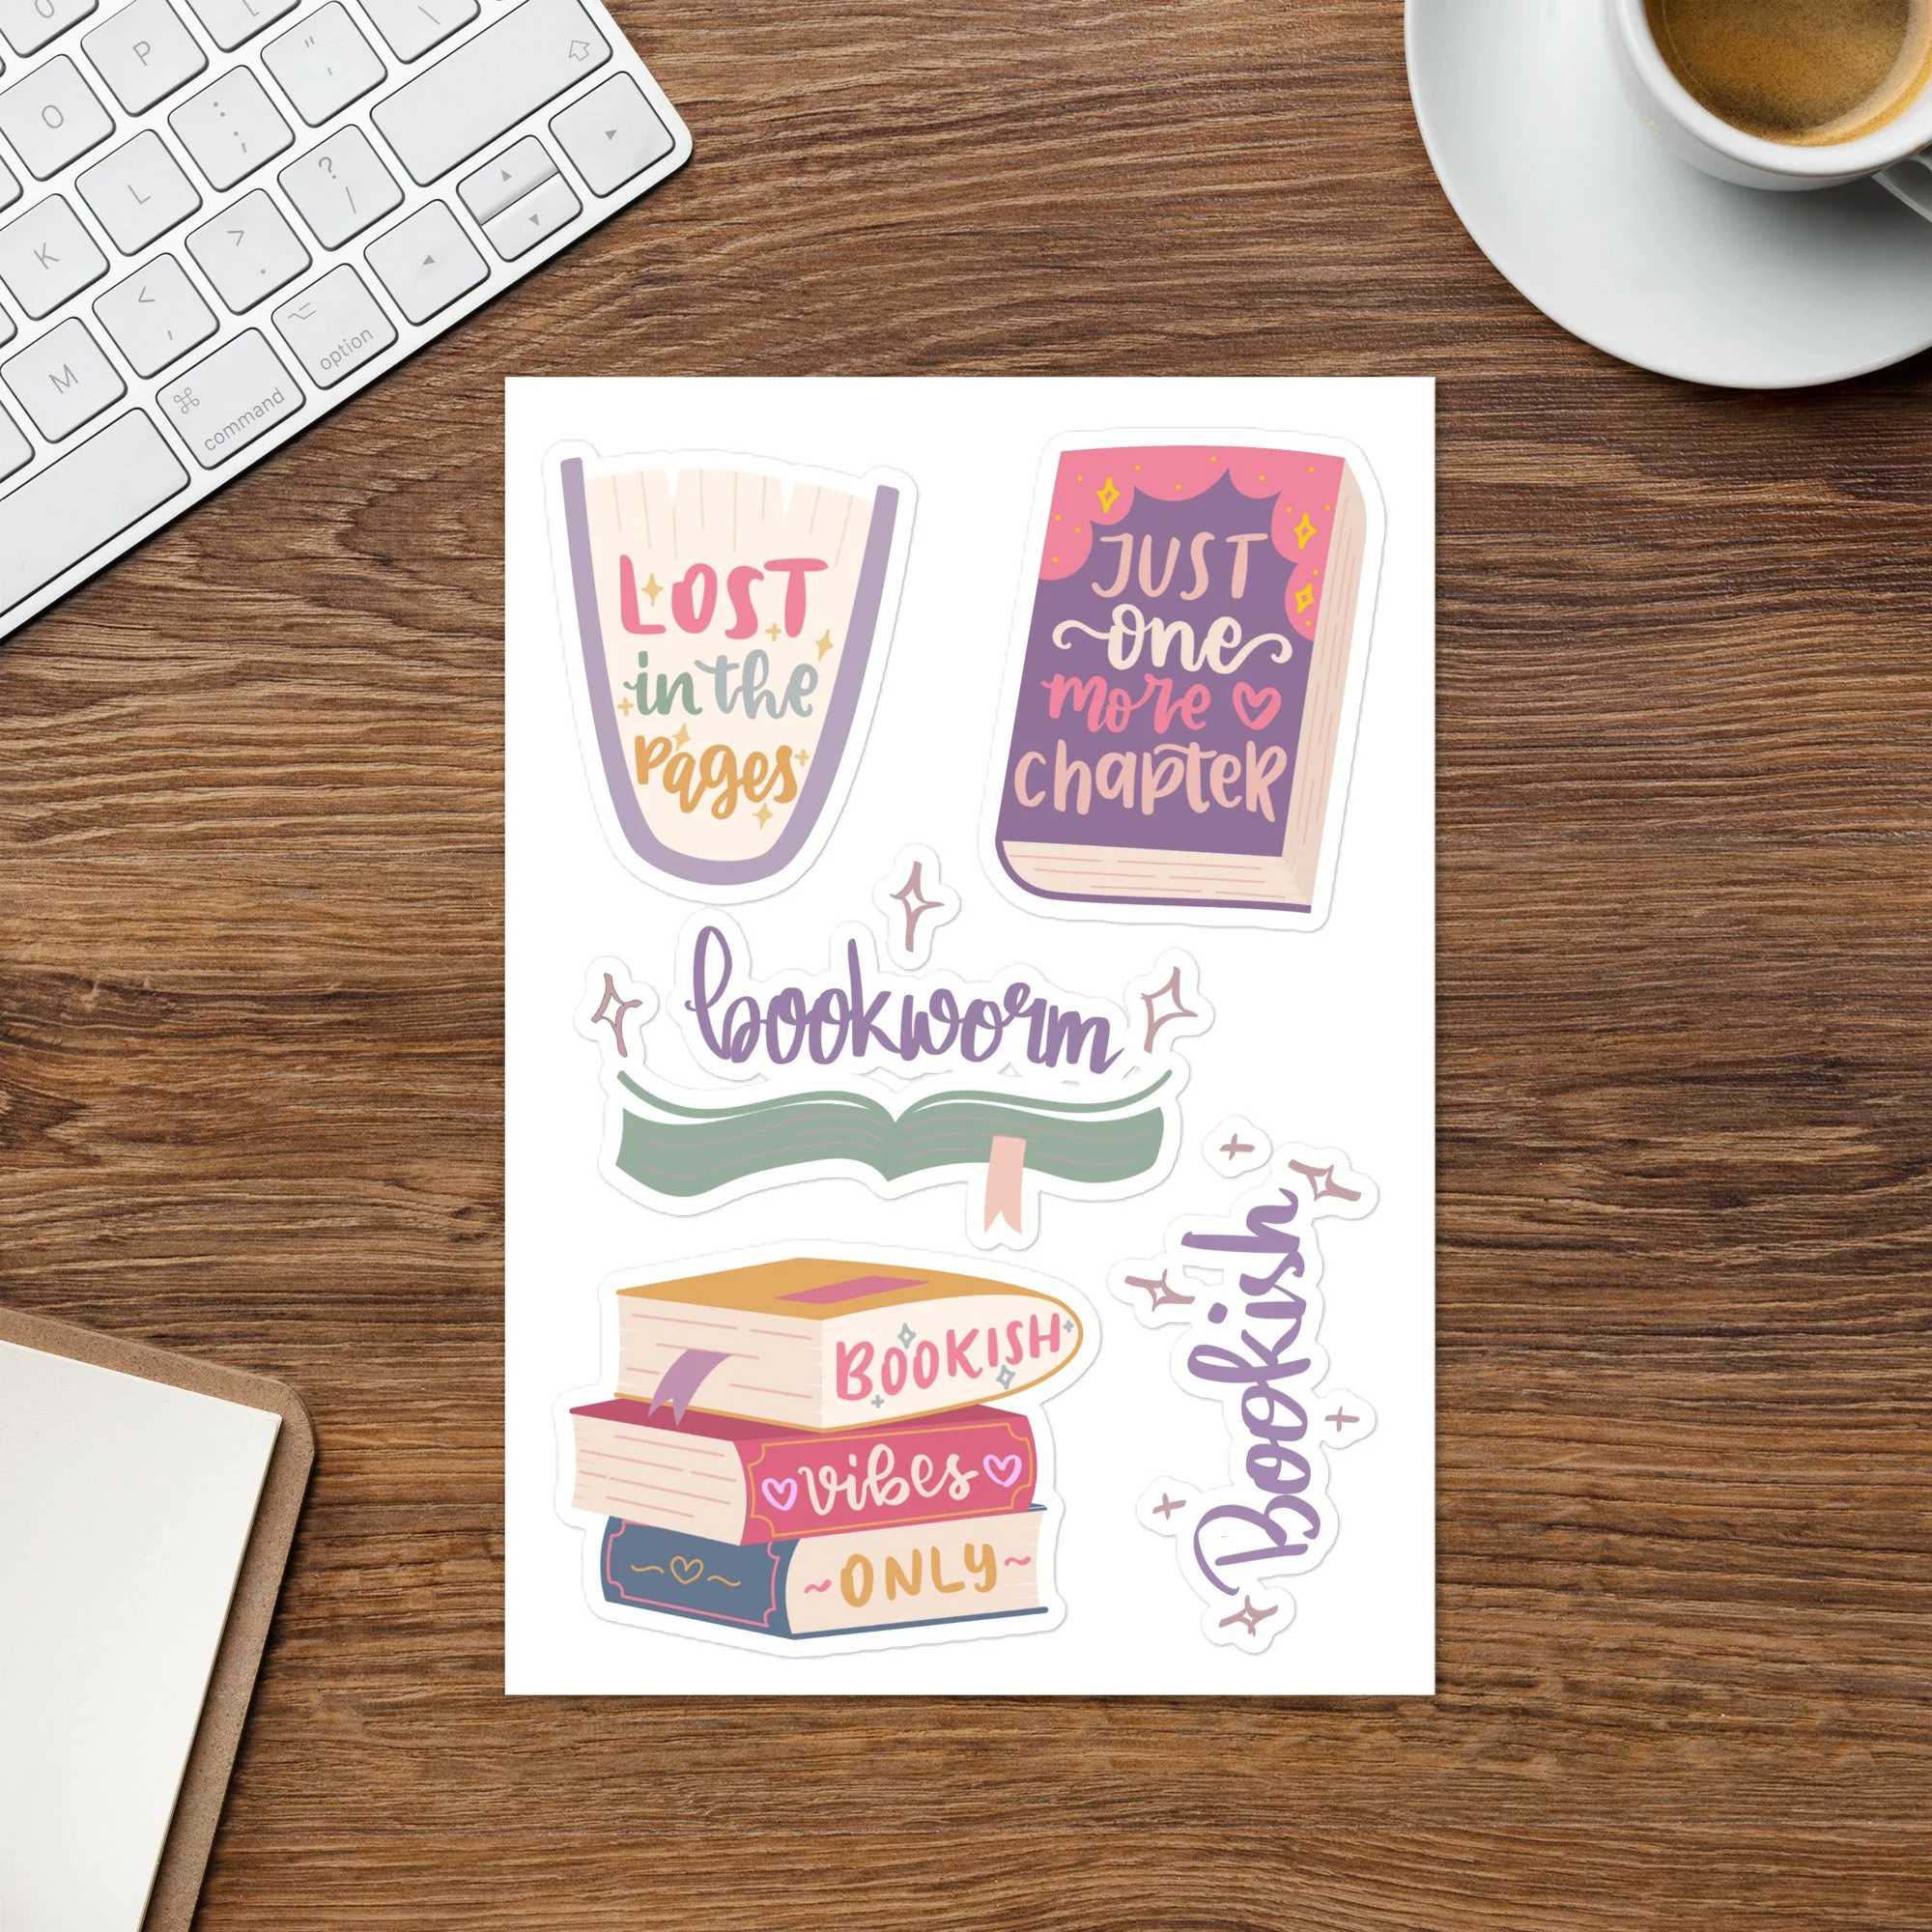 P
"
'
O
:
;
L
?
/
K
>
.
<
,
M
⌘
command
⌥
option
LOST
in the
pages
JUST
one
more
chapter
bookworm
Bookish
BOOKISH
vibes
~ONLY~